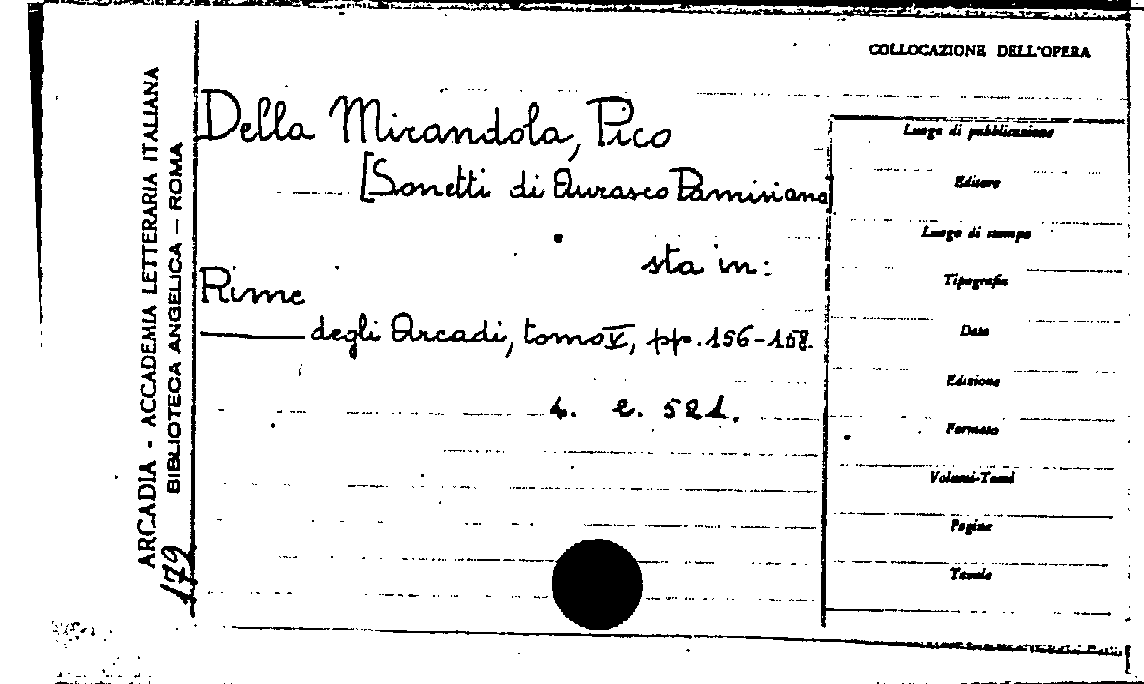 COLLOCAZIONE DELL'OPERA
ARCADIA - ACCADEMIA LETTERARIA ITALIANA
BIBLIOTECA ANGELICA — ROMA
179
Della Mirandola, Pico
[Sonetti di Aurasco Pamisiano]
sta in:
Rime
degli Arcadi, tomo V, pp. 156-158.
4. e. 521.
Luogo di pubblicazione
Editore
Luogo di stampa
Tipografia
Data
Edizione
Formato
Volumi-Tomi
Pagine
Tavole